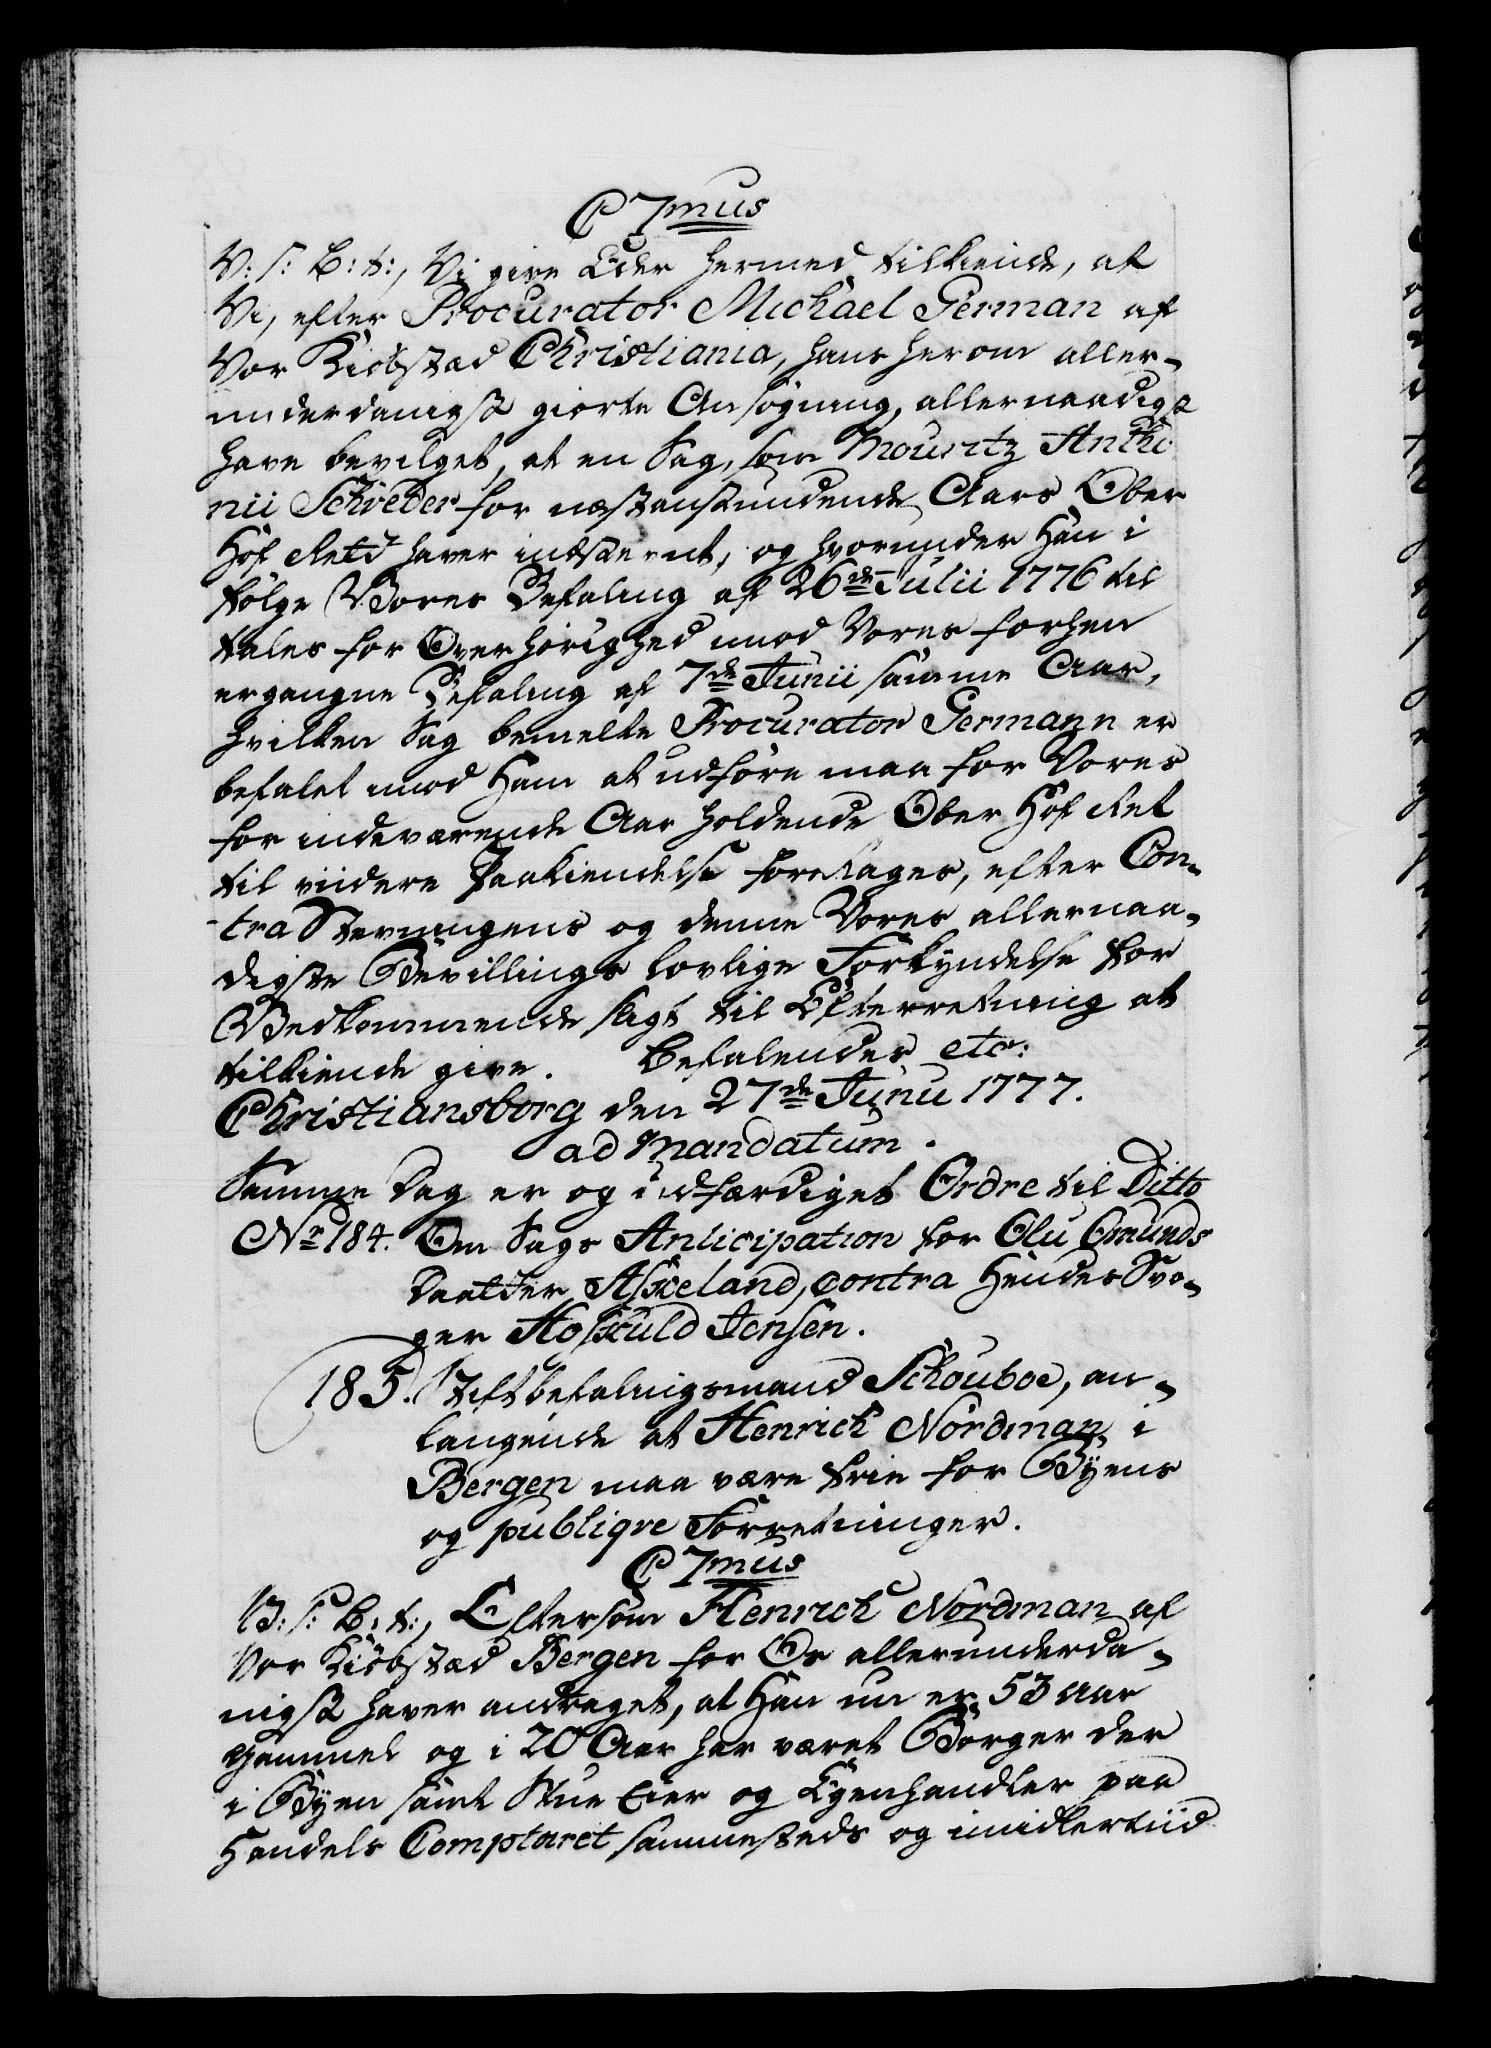 C 7mus
V: S: B: t:, Vi give Eder hermed tilkiende, at
Vi, efter Procurator Michael German af
Vor Kiøbstæd Christiania, hans herom aller-
underdanigst giorte Ansøgning, allernaadigst
have bevilget, at en Sag, som Mouritz Antho
nii Schrøder for næstanstundende Aars Ober
Hof Retd haver indstevnt, og hvorunder Han i
følge Vores Befaling af 26de Julii 1776 til
tales for Overhørighed imod Vores forhen
ergangne Befaling af 7de Junii samme Aar,
hvilken Sag bemelte Procurator Germann er
befalet imod Ham at udføre maa for Vores
for indeværende Aar holdende Ober Hof Ret
til viidere Paakiendelse foretages, efter Con-
tra Stevningens og denne Vores allernaa-
digste Bevillings lovlige Forkyndelse for
Vedkommende sligt til Efterretning at
tilkiende give. Befalendes etc:
Christiansborg den 27de Junii 1777.
ad Mandatum.
Samme Dag er og udfærdiget Ordre til Ditto
No 184. Om Sags Anticipation for Olu Omunds
Daatter Asseland, contra Hendes Svo-
ger Hoskuld Jensen.
185. Stiftbefalingsmand Schouboe, an-
langende at Henrich Nordman i
Bergen maa være frie for Byens
og publiqve Forretninger.
C 7mus
V: S: B: t:, Eftersom Henrich Nordman af
Vor Kiøbstæd Bergen for Os allerunderda-
nigst haver andraget, at Han nu er 53 Aar
gammel og i 20 Aar har været Borger der
i Byen samt Stue Eier og Kiøenhandler paa
Handels Comptoiret sammesteds og imidlertiid